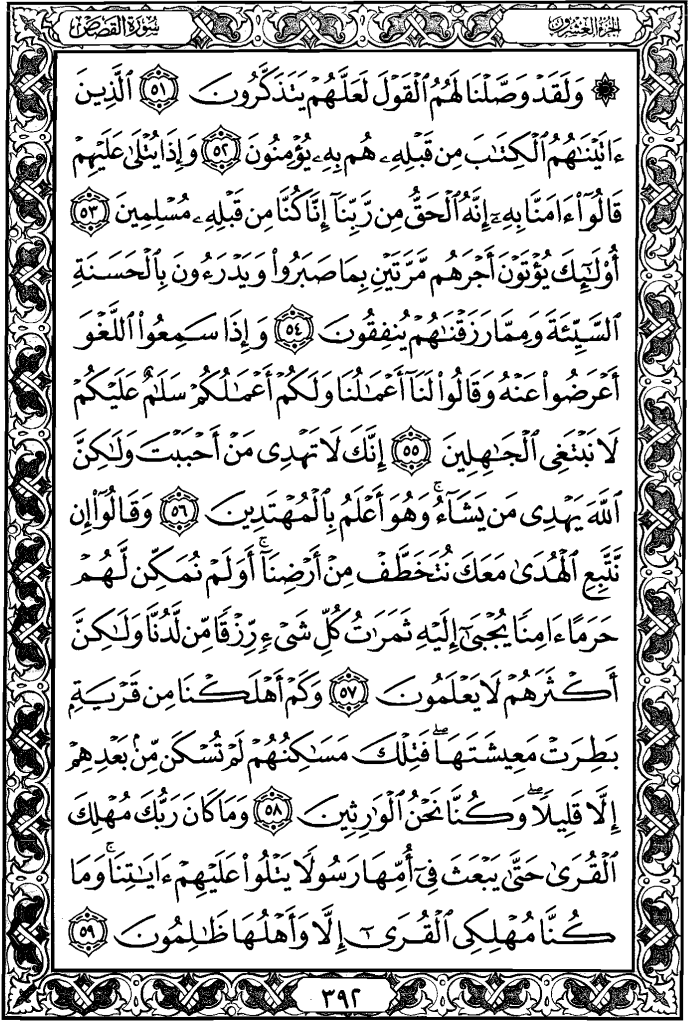 سُورَةُ القَصَصِ
الجُزْءُ العِشْرُونَ
۞ وَلَقَدْ وَصَّلْنَا لَهُمُ ٱلْقَوْلَ لَعَلَّهُمْ يَتَذَكَّرُونَ ٥١ ٱلَّذِينَ
ءَاتَيْنَٰهُمُ ٱلْكِتَٰبَ مِن قَبْلِهِۦ هُم بِهِۦ يُؤْمِنُونَ ٥٢ وَإِذَا يُتْلَىٰ عَلَيْهِمْ
قَالُوٓا۟ ءَامَنَّا بِهِۦٓ إِنَّهُ ٱلْحَقُّ مِن رَّبِّنَآ إِنَّا كُنَّا مِن قَبْلِهِۦ مُسْلِمِينَ ٥٣
أُو۟لَٰٓئِكَ يُؤْتَوْنَ أَجْرَهُم مَّرَّتَيْنِ بِمَا صَبَرُوا۟ وَيَدْرَءُونَ بِٱلْحَسَنَةِ
ٱلسَّيِّئَةَ وَمِمَّا رَزَقْنَٰهُمْ يُنفِقُونَ ٥٤ وَإِذَا سَمِعُوا۟ ٱللَّغْوَ
أَعْرَضُوا۟ عَنْهُ وَقَالُوا۟ لَنَآ أَعْمَٰلُنَا وَلَكُمْ أَعْمَٰلُكُمْ سَلَٰمٌ عَلَيْكُمْ
لَا نَبْتَغِى ٱلْجَٰهِلِينَ ٥٥ إِنَّكَ لَا تَهْدِى مَنْ أَحْبَبْتَ وَلَٰكِنَّ
ٱللَّهَ يَهْدِى مَن يَشَآءُ ۚ وَهُوَ أَعْلَمُ بِٱلْمُهْتَدِينَ ٥٦ وَقَالُوٓا۟ إِن
نَّتَّبِعِ ٱلْهُدَىٰ مَعَكَ نُتَخَطَّفْ مِنْ أَرْضِنَآ ۚ أَوَلَمْ نُمَكِّن لَّهُمْ
حَرَمًا ءَامِنًا يُجْبَىٰٓ إِلَيْهِ ثَمَرَٰتُ كُلِّ شَىْءٍ رِّزْقًا مِّن لَّدُنَّا وَلَٰكِنَّ
أَكْثَرَهُمْ لَا يَعْلَمُونَ ٥٧ وَكَمْ أَهْلَكْنَا مِن قَرْيَةٍۭ
بَطِرَتْ مَعِيشَتَهَا ۖ فَتِلْكَ مَسَٰكِنُهُمْ لَمْ تُسْكَن مِّنۢ بَعْدِهِمْ
إِلَّا قَلِيلًا ۖ وَكُنَّا نَحْنُ ٱلْوَٰرِثِينَ ٥٨ وَمَا كَانَ رَبُّكَ مُهْلِكَ
ٱلْقُرَىٰ حَتَّىٰ يَبْعَثَ فِىٓ أُمِّهَا رَسُولًا يَتْلُوا۟ عَلَيْهِمْ ءَايَٰتِنَا ۚ وَمَا
كُنَّا مُهْلِكِى ٱلْقُرَىٰٓ إِلَّا وَأَهْلُهَا ظَٰلِمُونَ ٥٩
٣٩٢